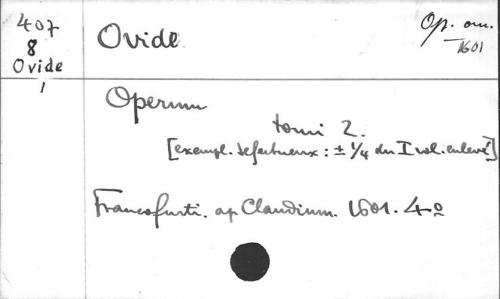 407
8
Ovide
1
Ovide
Op. om.
1601
Operum
tomi 2.
[exempl. defectueux : ± 1/4 du I vol. enlevé]
Francofurti. ap Claudium. 1601. 4º